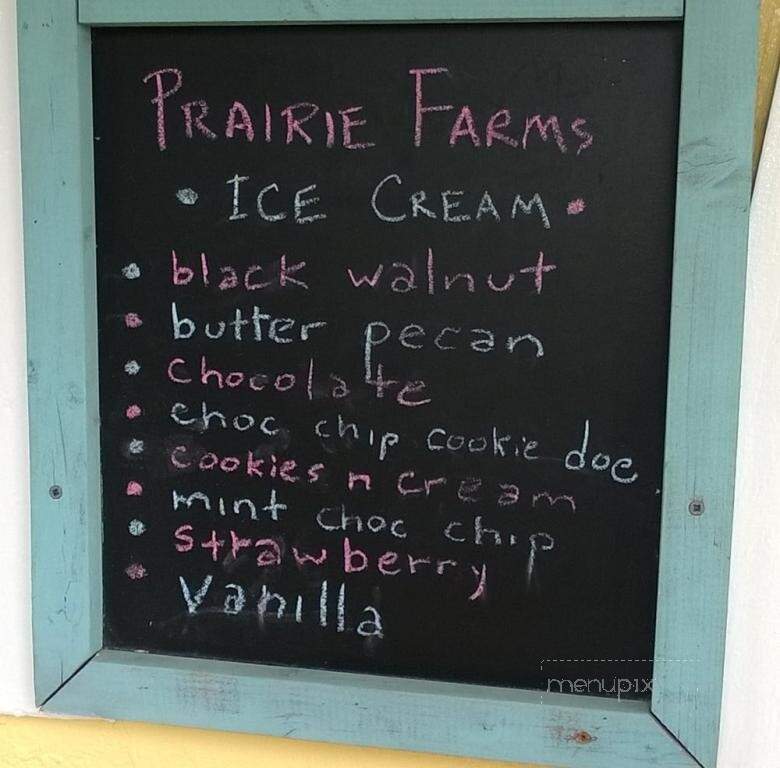 PRAIRIE FARMS
• ICE CREAM •
• black walnut
• butter pecan
• chocolate
• choc chip cookie doe
• cookies n cream
• mint choc chip
• strawberry
• Vanilla
menupix